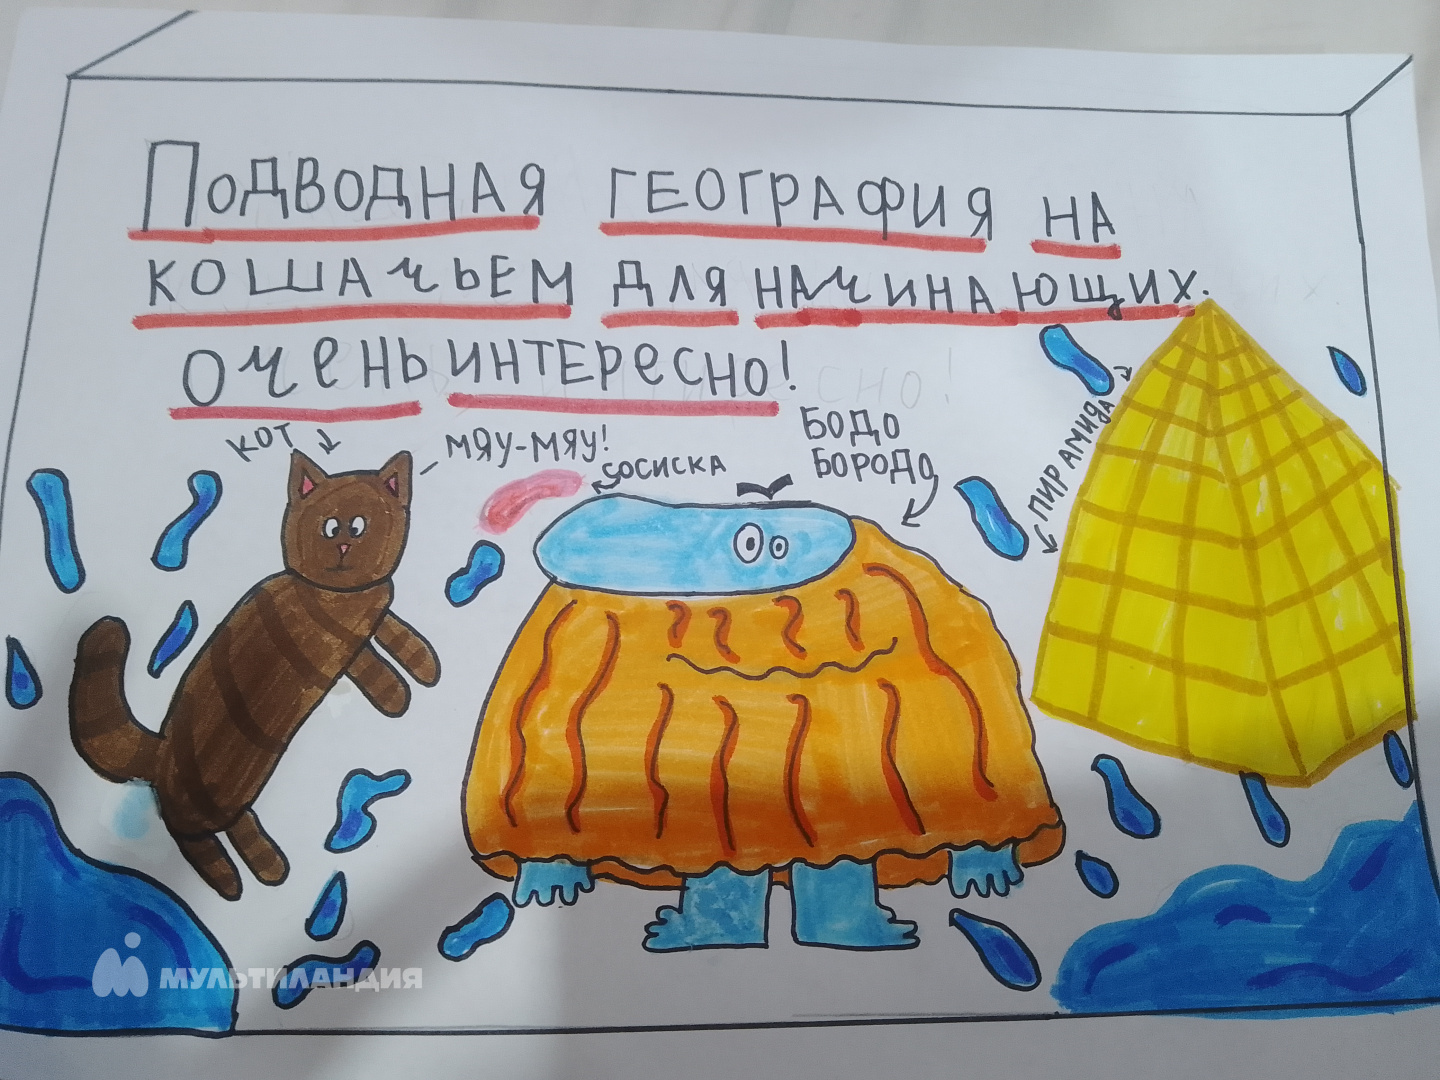 ПОДВОДНАЯ ГЕОГРАФИЯ НА
КОШАЧЬЕМ ДЛЯ НАЧИНАЮЩИХ.
ОЧЕНЬ ИНТЕРЕСНО!
КОТ
МЯУ-МЯУ!
СОСИСКА
БОДО
БОРОДО
ПИРАМИДА
МУЛЬТИЛАНДИЯ